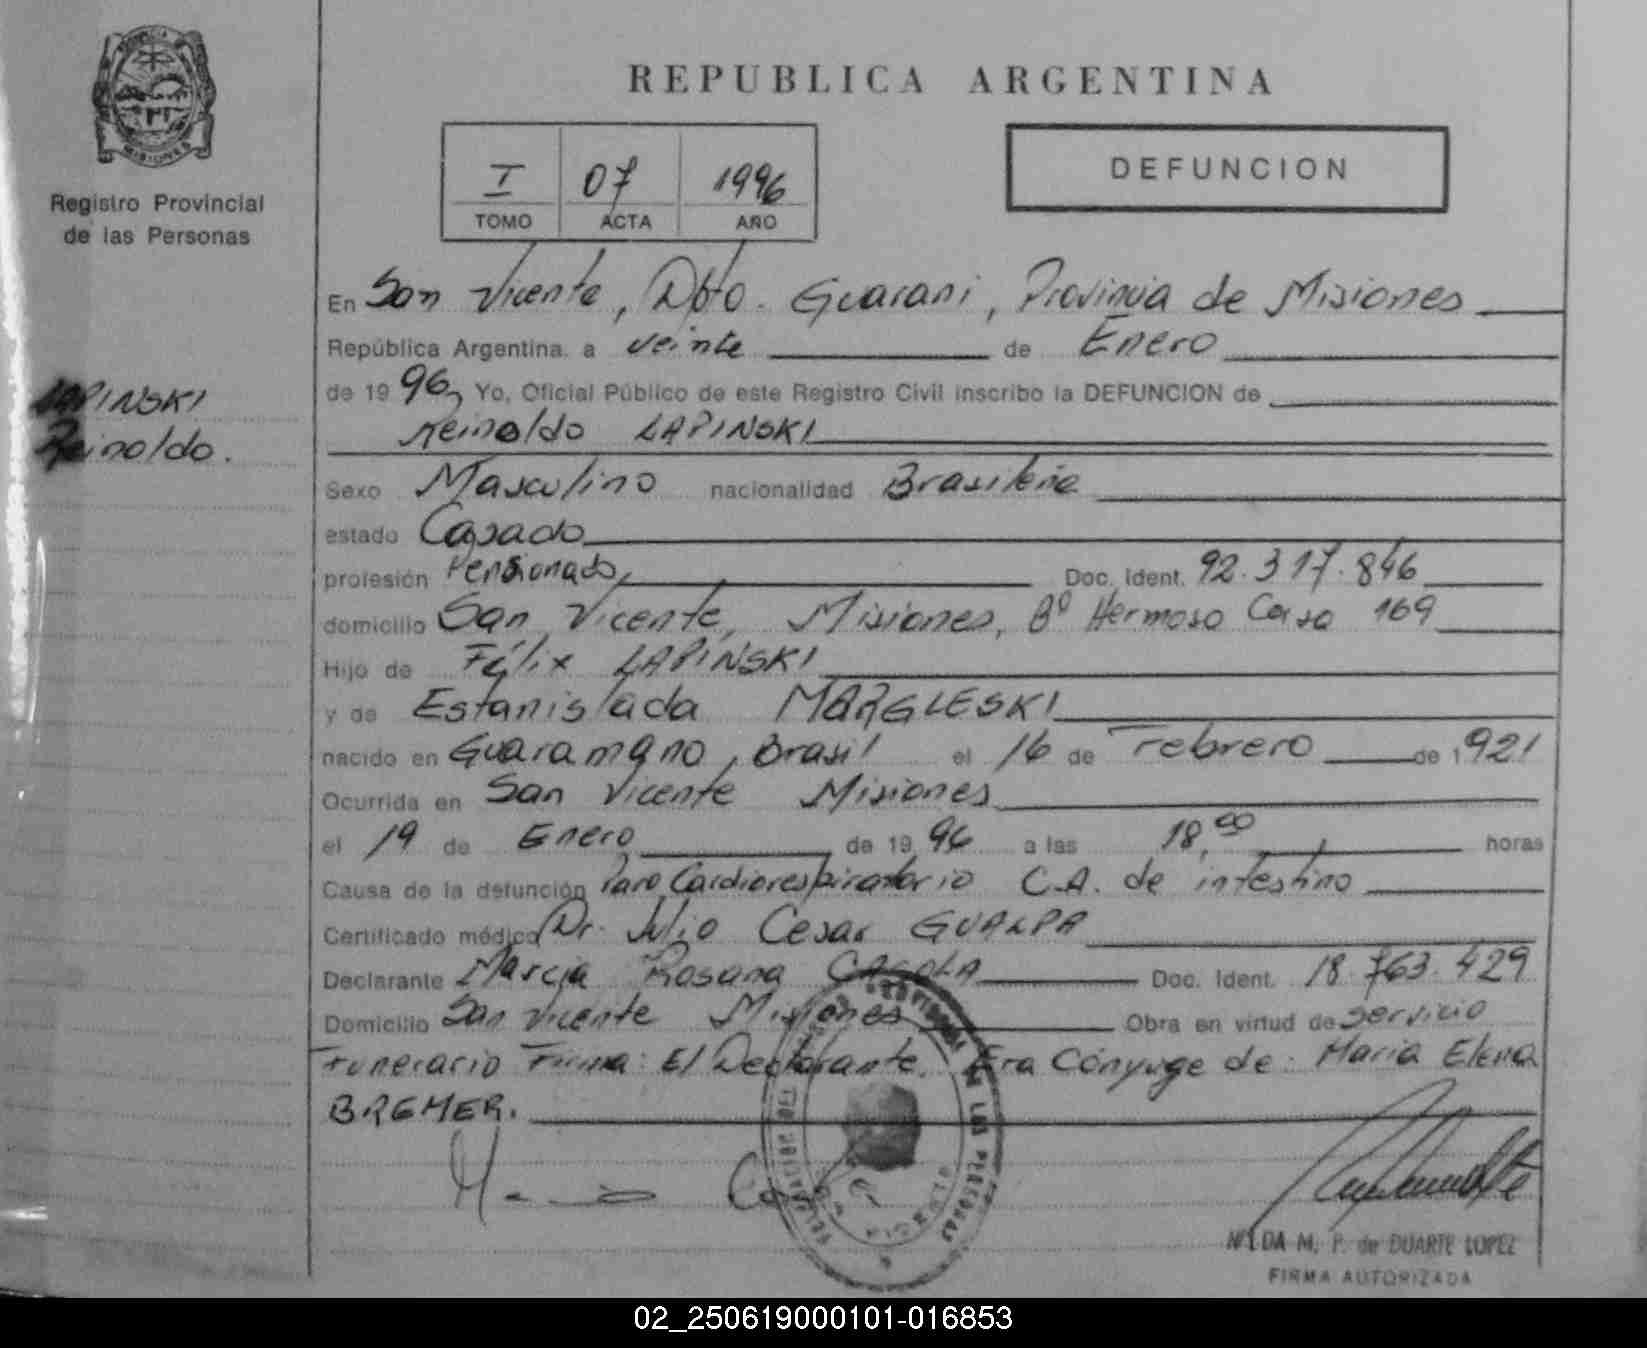 PROVINCIA
MISIONES
Registro Provincial
de las Personas
LAPINSKI
Reinoldo.
REPUBLICA ARGENTINA
I 07 1996
TOMO ACTA AÑO
DEFUNCION
En San Vicente, Dpto. Guarani, Provincia de Misiones
República Argentina. a veinte de Enero
de 1996, Yo, Oficial Público de este Registro Civil inscribo la DEFUNCION de
Reinoldo LAPINSKI
Sexo Masculino nacionalidad Brasileña
estado Casado
profesión Pensionado, Doc. Ident. 92.317.846
domicilio San Vicente, Misiones, Bº Hermoso Casa 169
Hijo de Félix LAPINSKI
y de Estanislada MARGLESKI
nacido en Guaramano, Brasil el 16 de Febrero de 1921
Ocurrida en San Vicente Misiones
el 19 de Enero de 1996 a las 18,00 horas
Causa de la defunción Paro Cardiorespiratorio C.A. de intestino
Certificado médico Dr. Julio Cesar GUALPA
Declarante Marcia Rosana Doc. Ident. 18.763.429
Domicilio San Vicente Misiones Obra en virtud de servicio
Funerario Firma: El Declarante. Era Cónyuge de: Maria Elena
BREMER.
DE LAS PERSONAS
NILDA M. P. de DUARTE LOPEZ
FIRMA AUTORIZADA
02_250619000101-016853